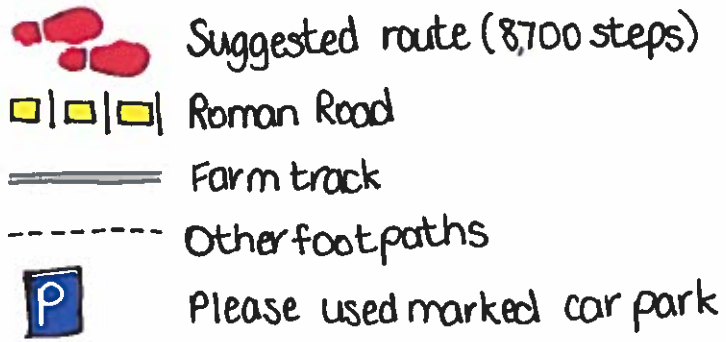 Suggested route (8,700 steps)
Roman Road
Farm track
Other footpaths
P
Please used marked car park